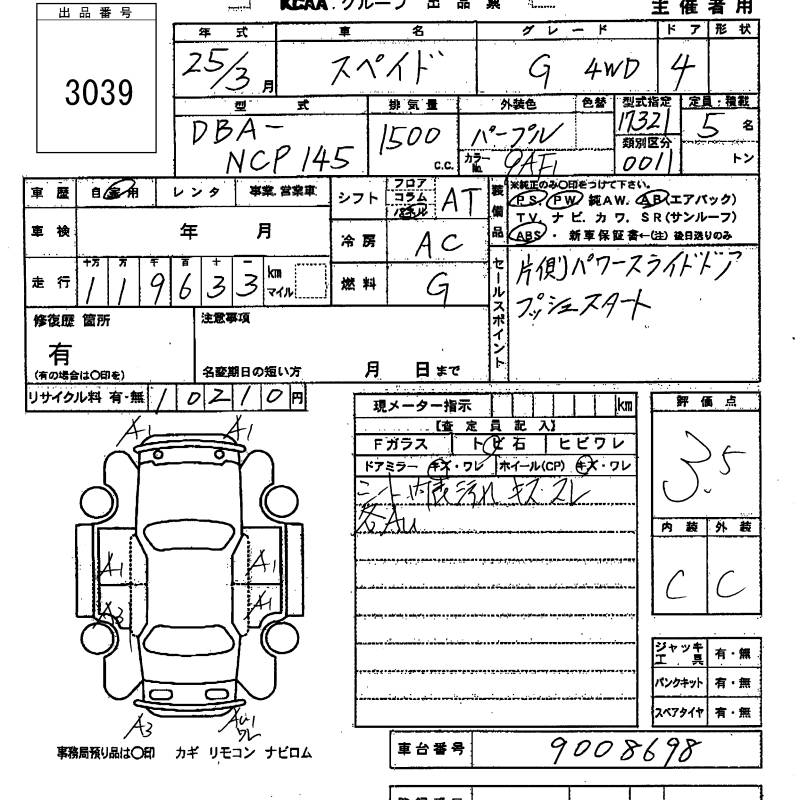 KCAA. グループ 出品票
主催者用
出品番号
3039
年式 車名 グレード ドア 形状
25/3月 スペイド G 4WD 4
型式 排気量 外装色 色替 型式指定 定員・積載
DBA-NCP145 1500 C.C. パープル 17321 5名
カラーNo. 9AF 類別区分 0011 トン
車歴 自家用 レンタ 事業.営業車
車検 年 月
走行 十万 万 千 百 十 一
119633 km マイル
シフト フロア コラム パネル AT
冷房 AC
燃料 G
装備品
※純正のみ〇印をつけて下さい。
P.S. PW 純AW. AB(エアバック)
TV. ナビ. カワ. SR(サンルーフ)
ABS ・ 新車保証書←(注) 後日送りのみ
セールスポイント
片側パワースライドドア
プッシュスタート
修復歴 箇所
有
(有の場合は〇印を)
注意事項
名変期日の短い方 月 日まで
リサイクル料 有・無 10210円
現メーター指示 km
【査定員記入】
Fガラス トビ石 ヒビワレ
ドアミラー キズ・ワレ ホイール(CP) キズ・ワレ
シート内装汚れ キズ スレ
各AU
評価点
3.5
内装 外装
C C
A1 A1
A1 A1
A3 A1
A3
ジャッキ工具 有・無
パンクキット 有・無
スペアタイヤ 有・無
事務局預り品は〇印 カギ リモコン ナビロム
車台番号 9008698